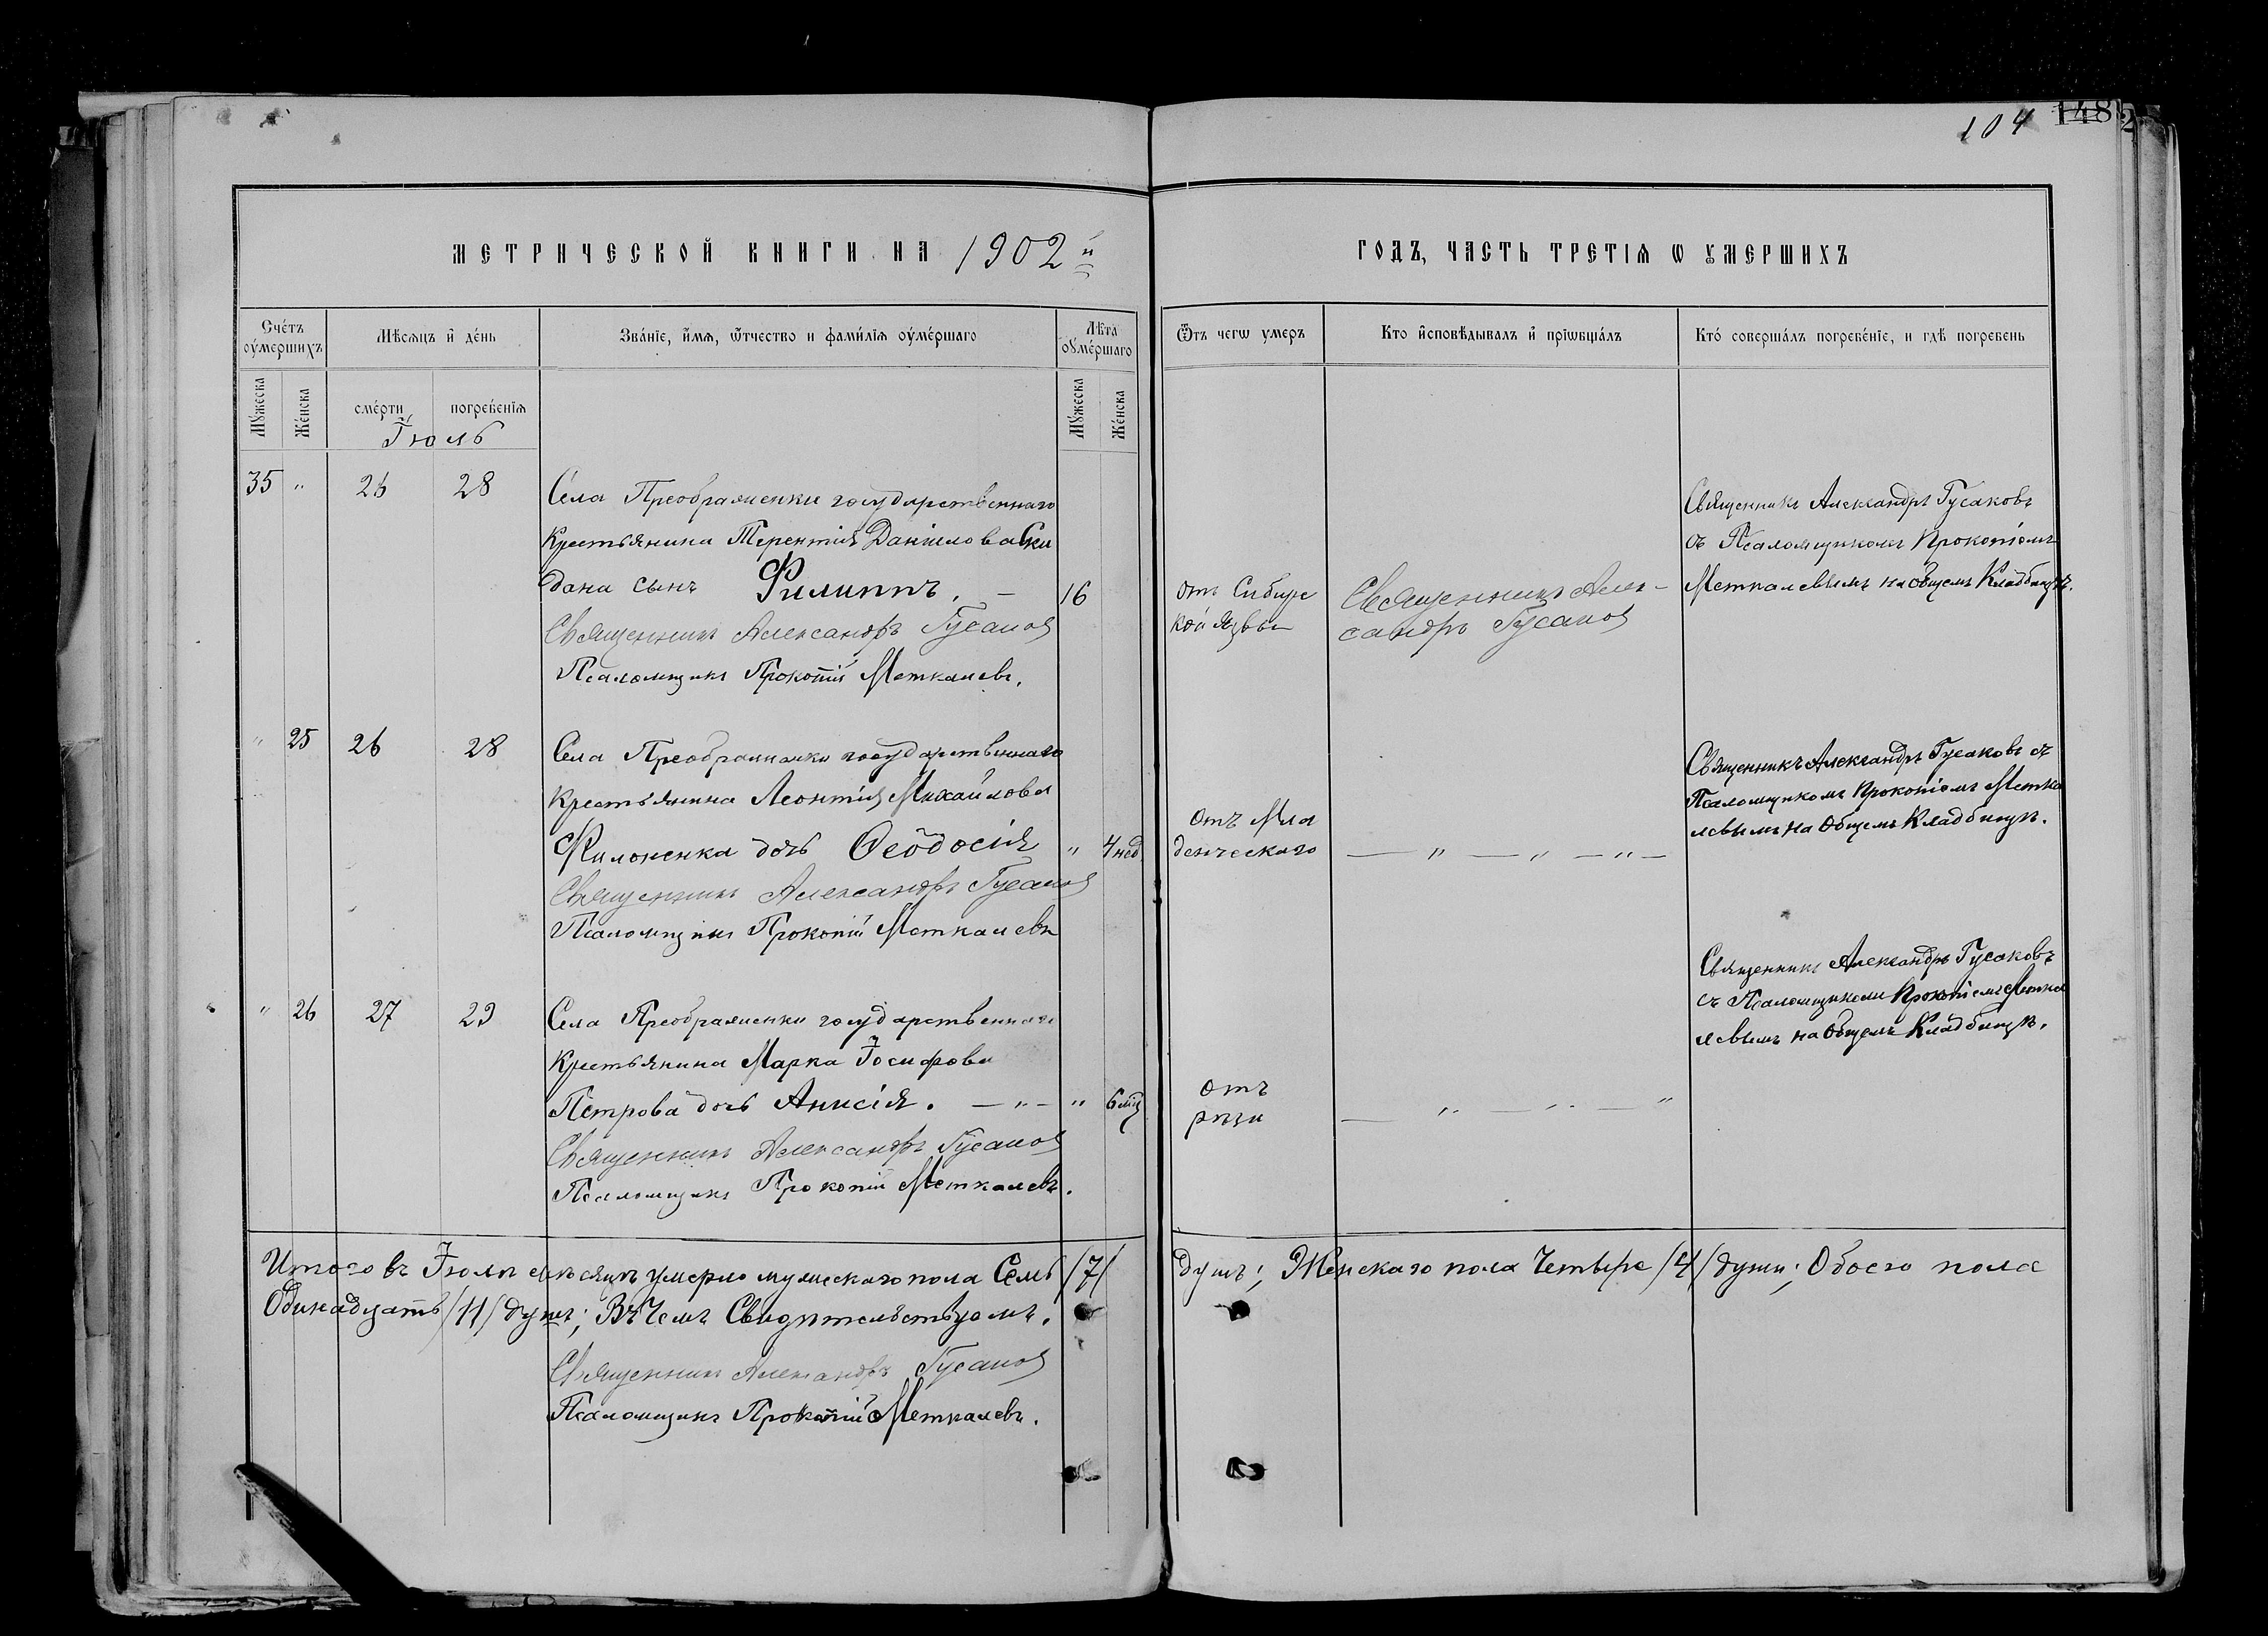 104 148 2
МЕТРИЧЕСКОЙ КНИГИ НА 1902й
ГОДЪ, ЧАСТЬ ТРЕТІѦ Ѡ ꙊМЕРШИХЪ
Сче́тъ оу҆ме́ршихъ
Мѣсѧцъ и҆ де́нь
Зва́нїе, и҆́мѧ, ѿтчество и фами́лїѧ оу҆ме́ршаго
Лѣ́та оу҆ме́ршаго
Ѿтъ чегѡ умеръ
Кто и҆сповѣ́дывалъ и҆ прїѡбща́лъ
Кто́ соверша́лъ погребе́нїе, и гдѣ̀ погребенъ
Мꙋ́жеска
Же́нска
сме́рти
погребе́нїѧ
Мꙋ́жеска
Же́нска
Іюль
35 " 26 28
Села Преображенки государственнаго
Крестьянина Терентія Данилова Ски
дана сынъ Филиппъ. — 16
Священникъ Александръ Гусаков
Псаломщикъ Прокопій Меткалевъ.
отъ Сибирс
кой язвы
Священникъ Алек-
сандръ Гусаков
Священникъ Александръ Гусаковъ
съ Псаломщикомъ Прокопіемъ
Меткалевымъ на общемъ Кладбищѣ.
" 25 26 28
Села Преображенки государственнаго
Крестьянина Леонтія Михайлова
Филоненка дочь Ѳеодосія " 4 нед
Священникъ Александръ Гусаков
Псаломщикъ Прокопій Меткалевъ
Отъ Мла
денческаго — " — " — " —
Священникъ Александръ Гусаковъ съ
Псаломщикомъ Прокопіемъ Метка
левымъ на Общемъ Кладбищѣ.
" 26 27 29
Села Преображенки государственнаго
Крестьянина Марка Іосифова
Петрова дочь Анисія. — " — " 6 мц
Священникъ Александръ Гусаков
Псаломщикъ Прокопій Меткалевъ.
отъ
рѣзи — " — " — "
Священникъ Александръ Гусаковъ
съ Псаломщикомъ Прокопіемъ Метка
левымъ на Общемъ Кладбищѣ.
Итого въ Іюлѣ мѣсяцѣ умерло мужескаго пола Семь /7/ душъ; Женскаго пола Четыре /4/ души; Обоего пола
Одинадцать /11/ душъ; Въ чемъ Свидѣтельствуемъ.
Священникъ Александръ Гусаков
Псаломщикъ Прокопій Меткалевъ.